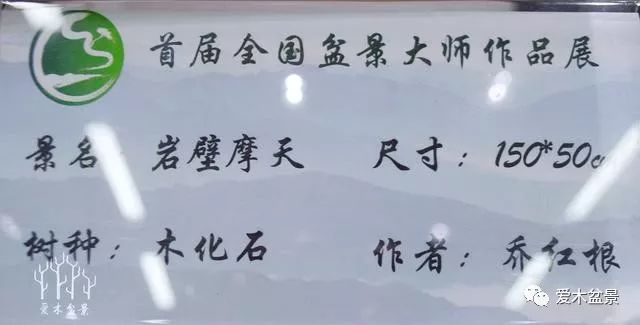 首届全国盆景大师作品展
景名：岩壁摩天 尺寸：150*50c
树种：木化石 作者：乔红根
爱木盆景
爱木盆景